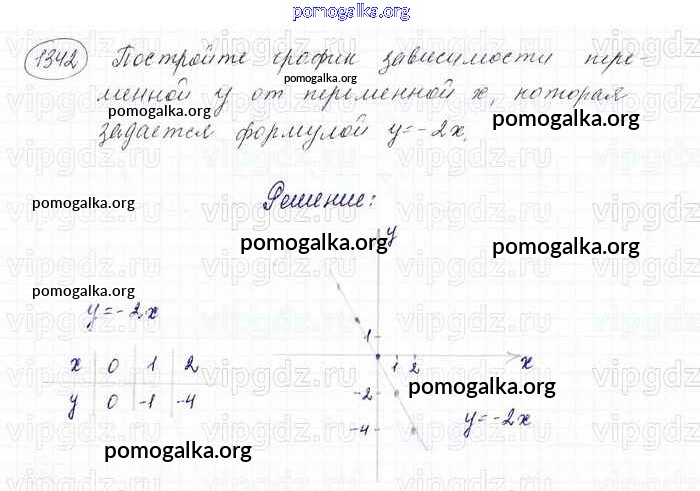 pomogalka.org
1342 Постройте график зависимости пере-
pomogalka.org
менной y от переменной x, которая
pomogalka.org pomogalka.org
задается формулой y=-2x.
vipgdz.ru vipgdz.ru vipgdz.ru vipgdz.ru
pomogalka.org
Решение:
pomogalka.org pomogalka.org
y
pomogalka.org
y=-2x
1
x 0 1 2
1 2 x
y 0 -1 -4
-2
pomogalka.org
-4
y=-2x
pomogalka.org